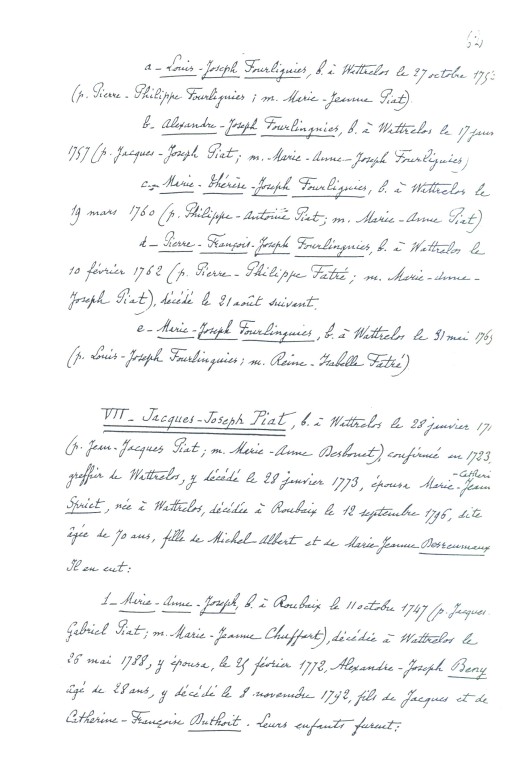 a - Louis-Joseph Fourliguies, b. à Wattrelos le 27 octobre 175
(p. Pierre-Philippe Fourliguies ; m. Marie-Jeanne Piat)
b - Alexandre-Joseph Fourlinguies, b. à Wattrelos le 17 janv
1757 (p. Jacques-Joseph Piat ; m. Marie-Anne-Joseph Fourliguies)
c - Marie-Thérèse-Joseph Fourliguies, b. à Wattrelos le
19 mars 1760 (p. Philippe-Antoine Piat ; m. Marie-Anne Piat)
d - Pierre-François-Joseph Fourlinguies, b. à Wattrelos le
10 février 1762 (p. Pierre-Philippe Fatré ; m. Marie-Anne-
Joseph Piat), décédé le 21 août suivant.
e - Marie-Joseph Fourlinguies, b. à Wattrelos le 31 mai 176
(p. Louis-Joseph Fourlinguies ; m. Reine-Isabelle Fatré)
VII - Jacques-Joseph Piat, b. à Wattrelos le 28 janvier 171
(p. Jean-Jacques Piat ; m. Marie-Anne Desbonet), confirmé en 1723,
greffier de Wattrelos, y décédé le 28 janvier 1773, épousa Marie-Jean
-Catheri
Spriet, née à Wattrelos, décédée à Roubaix le 12 septembre 1796, dite
âgée de 70 ans, fille de Michel Albert et de Marie Jeanne Desreumaux
Il en eut :
1 - Marie-Anne-Joseph, b. à Roubaix le 11 octobre 1747 (p. Jacques-
Gabriel Piat ; m. Marie-Jeanne Chuffart), décédée à Wattrelos le
26 mai 1788, y épousa, le 25 février 1772, Alexandre-Joseph Beny
âgé de 28 ans, y décédé le 8 novembre 1792, fils de Jacques et de
Catherine-Françoise Duthoit. Leurs enfants furent :